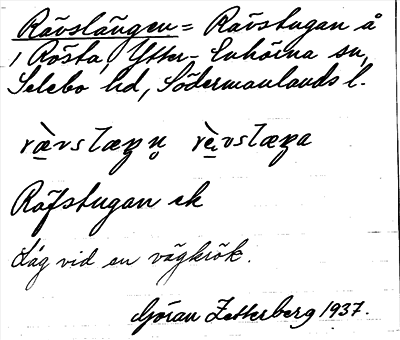 Rävslängen = Rävstugan å
/ Rösta, Ytter-Enhörna sn,
Selebo hd, Södermanlands l.
Räfstugan ek
Låg vid en vägkrök.
Göran Zetterberg 1937.